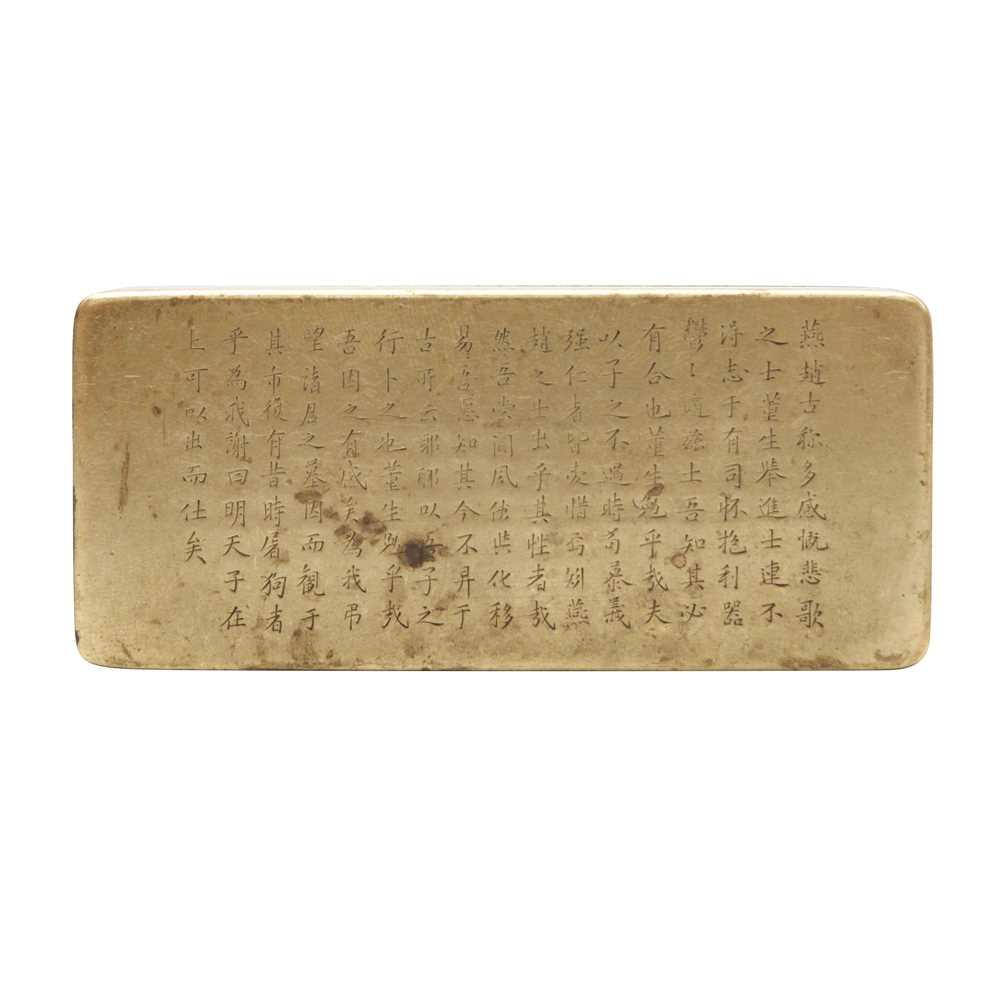 燕趙古称多感慨悲歌
之士董生舉進士連不
浔志于有司怀抱利器
鬱〻適茲土吾知其必
有合也董生勉乎哉夫
以子之不遇時苟慕義
强仁者皆爱惜焉矧燕
趙之士出乎其性者哉
然吾尝闻风俗與化移
易吾惡知其今不异于
古所云耶聊以吾子之
行卜之也董生勉乎哉
吾因之有感矣為我吊
望諸君之墓因而觀于
其市復有昔時屠狗者
乎為我謝曰明天子在
上可以出而仕矣